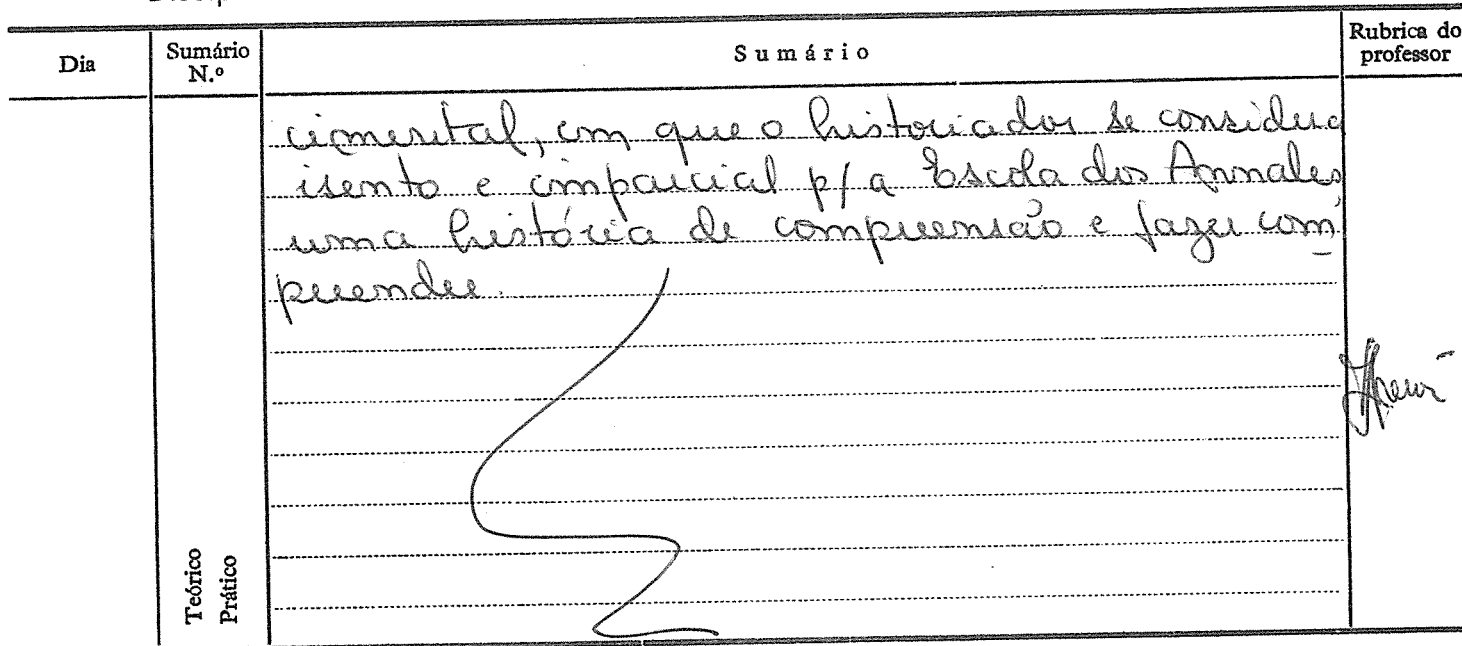 Dia
Sumário
N.º
Sumário
Rubrica do
professor
cimental, em que o historiador se considera
isento e imparcial p/ a Escola dos Annales
uma história de compreensão e fazer com
preender.
Teórico
Prático